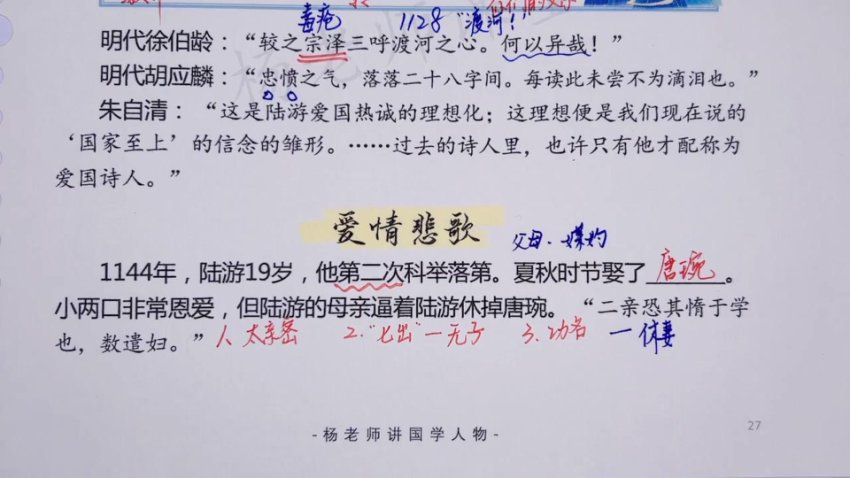 毒疮 1128 "渡河！"
明代徐伯龄：“较之宗泽三呼渡河之心。何以异哉！”
明代胡应麟：“忠愤之气，落落二十八字间。每读此未尝不为滴泪也。”
朱自清：“这是陆游爱国热诚的理想化；这理想便是我们现在说的
‘国家至上’的信念的雏形。……过去的诗人里，也许只有他才配称为
爱国诗人。”
爱情悲歌
父母·媒妁
1144年，陆游19岁，他第二次科举落第。夏秋时节娶了唐琬。
小两口非常恩爱，但陆游的母亲逼着陆游休掉唐琬。“二亲恐其惰于学
也，数遣妇。”1. 太亲密 2. "七出"一无子 3. 功名 一休妻
-杨老师讲国学人物-
27